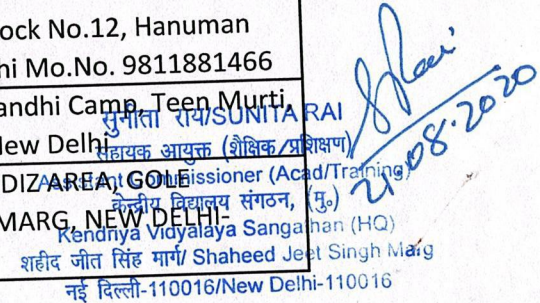 ock No.12, Hanuman
hi Mo.No. 9811881466
andhi Camp, Teen Murti,
New Delhi
DIZ AREA, GOLE
MARG, NEW DELHI-
सुनीता राय/SUNITA RAI
सहायक आयुक्त (शैक्षिक/प्रशिक्षण)
Assistant Commissioner (Acad/Training)
केन्द्रीय विद्यालय संगठन, (मु.)
Kendriya Vidyalaya Sangathan (HQ)
शहीद जीत सिंह मार्ग/ Shaheed Jeet Singh Marg
नई दिल्ली-110016/New Delhi-110016
SRai
21.08.2020